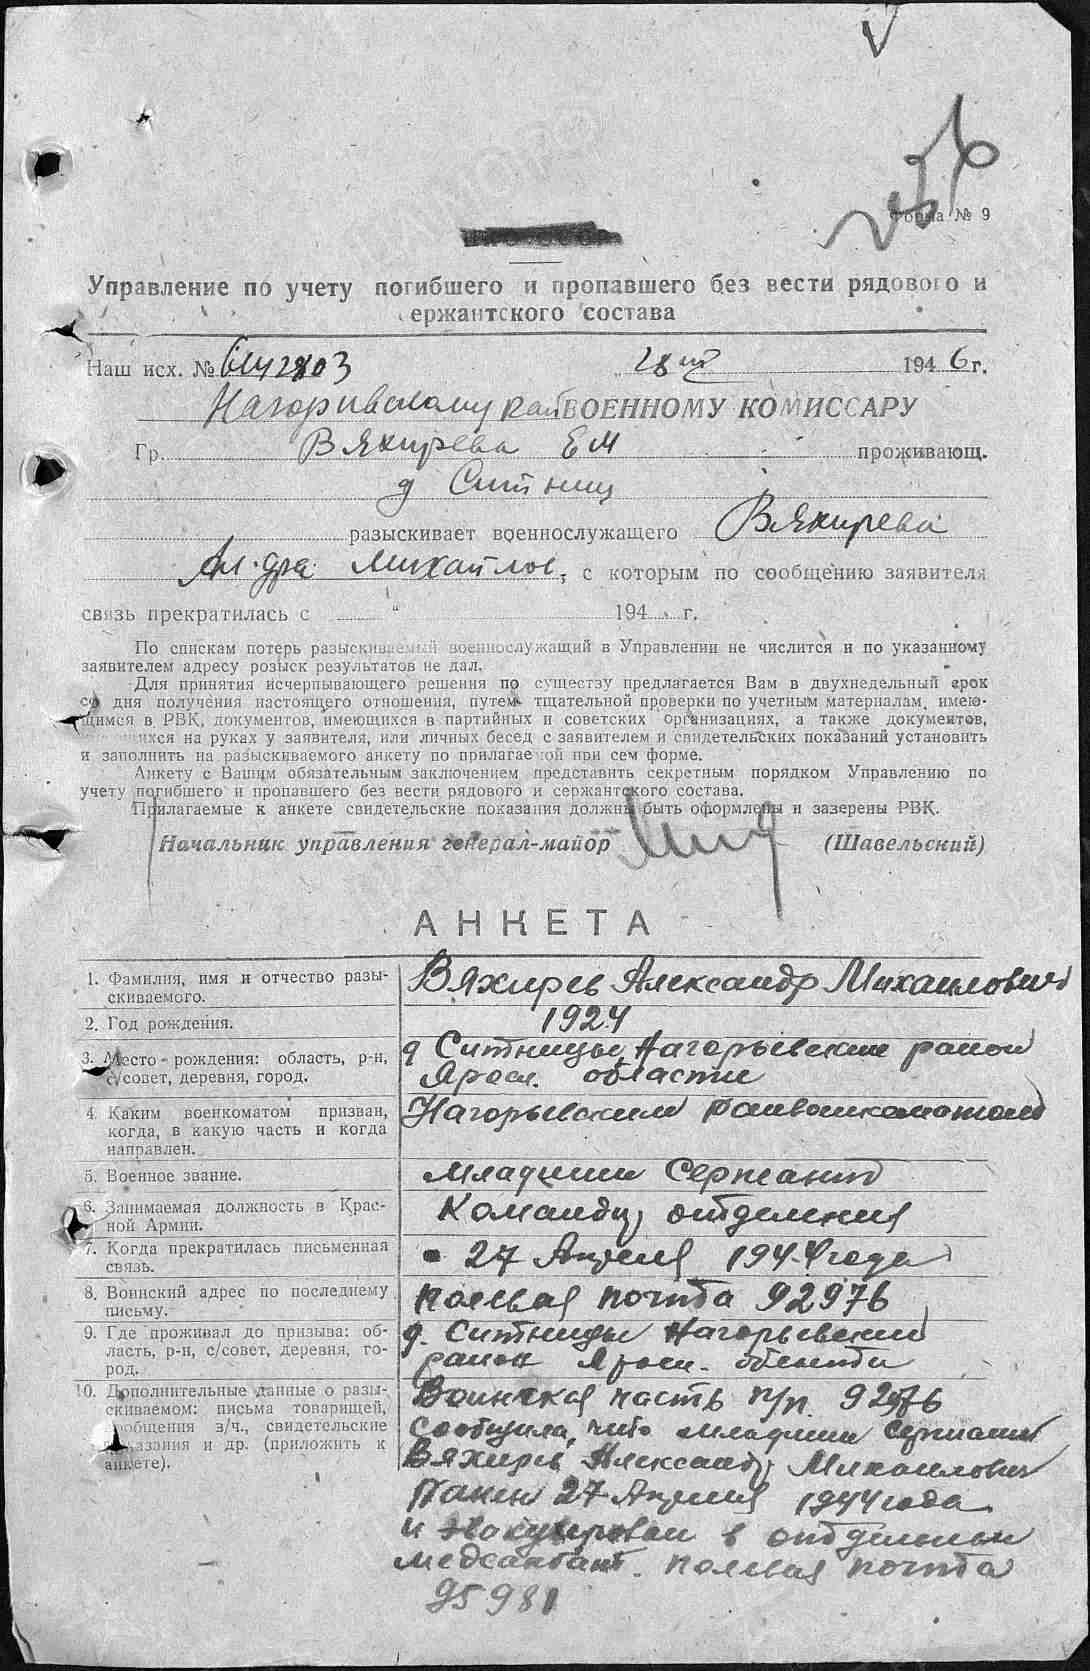 Форма № 9
Управление по учету погибшего и пропавшего без вести рядового и
сержантского состава
Наш исх. № 28 III 1946 г.
Нагорьевскому рай ВОЕННОМУ КОМИССАРУ
Гр. Вяхирева Е М проживающ.
д Ситниц
разыскивает военнослужащего Вяхирева
Ал-дра Михайлов, с которым по сообщению заявителя
связь прекратилась с „ “ 194 г.
По спискам потерь разыскиваемый военнослужащий в Управлении не числится и по указанному
заявителем адресу розыск результатов не дал.
Для принятия исчерпывающего решения по существу предлагается Вам в двухнедельный срок
со дня получения настоящего отношения, путем тщательной проверки по учетным материалам, имею-
щимся в РВК, документов, имеющихся в партийных и советских организациях, а также документов,
имеющихся на руках у заявителя, или личных бесед с заявителем и свидетельских показаний установить
и заполнить на разыскиваемого анкету по прилагаемой при сем форме.
Анкету с Вашим обязательным заключением представить секретным порядком Управлению по
учету погибшего и пропавшего без вести рядового и сержантского состава.
Прилагаемые к анкете свидетельские показания должны быть оформлены и заверены РВК.
Начальник управления генерал-майор (Шавельский)
АНКЕТА
1. Фамилия, имя и отчество разы-
скиваемого.
Вяхирев Александр Михаилович
2. Год рождения.
1924
3. Место рождения: область, р-н,
с/совет, деревня, город.
д Ситницы Нагорьевский район
Яросл. области
4. Каким военкоматом призван,
когда, в какую часть и когда
направлен.
Нагорьевским райвоенкоматом
5. Военное звание.
Младший Сержант
6. Занимаемая должность в Крас-
ной Армии.
Командир отделения
7. Когда прекратилась письменная
связь.
27 Апреля 1944 года
8. Воинский адрес по последнему
письму.
полевая почта 92976
9. Где проживал до призыва: об-
ласть, р-н, с/совет, деревня, го-
род.
д. Ситницы Нагорьевский
район Яросл. области
10. Дополнительные данные о разы-
скиваемом: письма товарищей,
сообщения в/ч., свидетельские
показания и др. (приложить к
анкете).
Воинская часть п/п. 92976
сообщила, что младший сержант
Вяхирев Александр Михаилович
Ранен 27 Апреля 1944 года
и эвакуирован в отдельный
медсанбат. полевая почта
95981